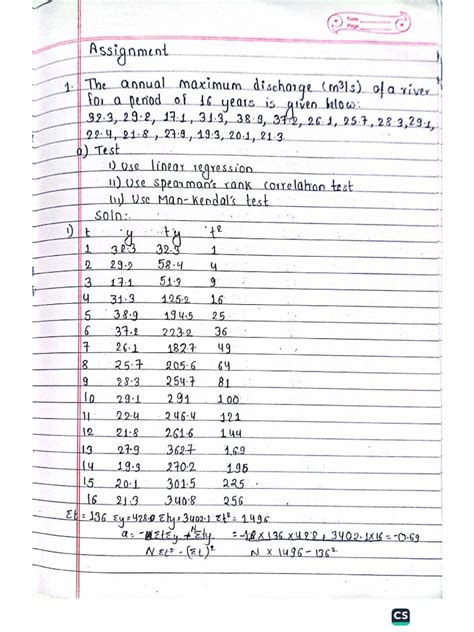 Date
Page
Assignment
1. The annual maximum discharge (m³/s) of a river
for a period of 16 years is given below:
32.3, 29.2, 17.1, 31.3, 38.9, 37.2, 26.1, 25.7, 28.3, 29.1,
22.4, 21.8, 27.9, 19.3, 20.1, 21.3
a) Test
i) Use linear regression
ii) Use spearman's rank correlation test
iii) Use Man-Kendal's test
soln:
i) t y ty t²
1 32.3 32.3 1
2 29.2 58.4 4
3 17.1 51.3 9
4 31.3 125.2 16
5 38.9 194.5 25
6 37.2 223.2 36
7 26.1 182.7 49
8 25.7 205.6 64
9 28.3 254.7 81
10 29.1 291 100
11 22.4 246.4 121
12 21.8 261.6 144
13 27.9 362.7 169
14 19.3 270.2 196
15 20.1 301.5 225
16 21.3 340.8 256
Σt = 136 Σy = 428.0 Σty = 3402.1 Σt² = 1496
a = -ΣtΣy + NΣty = -136 × 428 + 3402.1 × 16 = -0.69
NΣt² - (Σt)² N × 1496 - 136²
CS